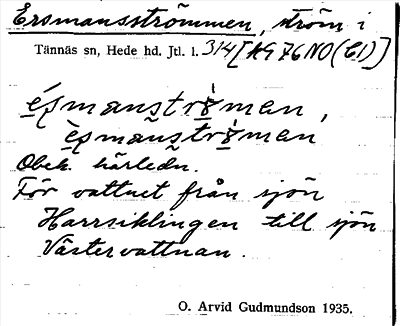 Ersmansströmmen, ström i
Tännäs sn, Hede hd. Jtl. l. 314 [HG 76 NO (C1)]
èsmanströ́man,
èsmanströ́man
Obek. härledn.
För vattnet från sjön
Harrsiklingen till sjön
Västervattnan.
O. Arvid Gudmundson 1935.